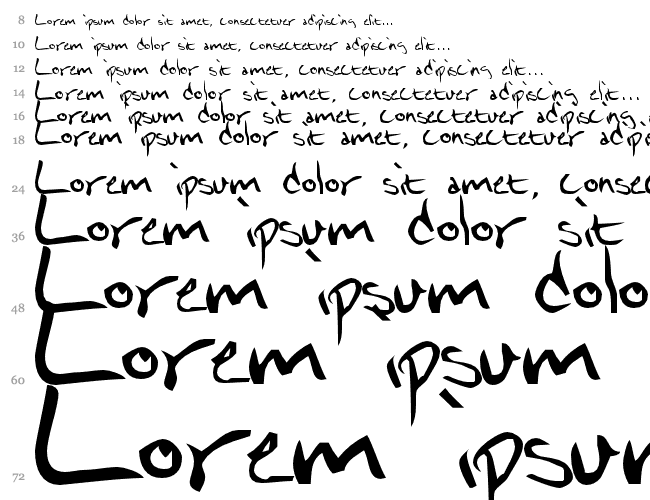 8 Lorem ipsum dolor sit amet, consectetuer adipiscing elit...
10 Lorem ipsum dolor sit amet, consectetuer adipiscing elit...
12 Lorem ipsum dolor sit amet, consectetuer adipiscing elit...
14 Lorem ipsum dolor sit amet, consectetuer adipiscing elit...
16 Lorem ipsum dolor sit amet, consectetuer adipiscing
18 Lorem ipsum dolor sit amet, consectetuer adipi
24 Lorem ipsum dolor sit amet, consec
36 Lorem ipsum dolor sit
48 Lorem ipsum dolo
60 Lorem ipsum
72 Lorem ipsu